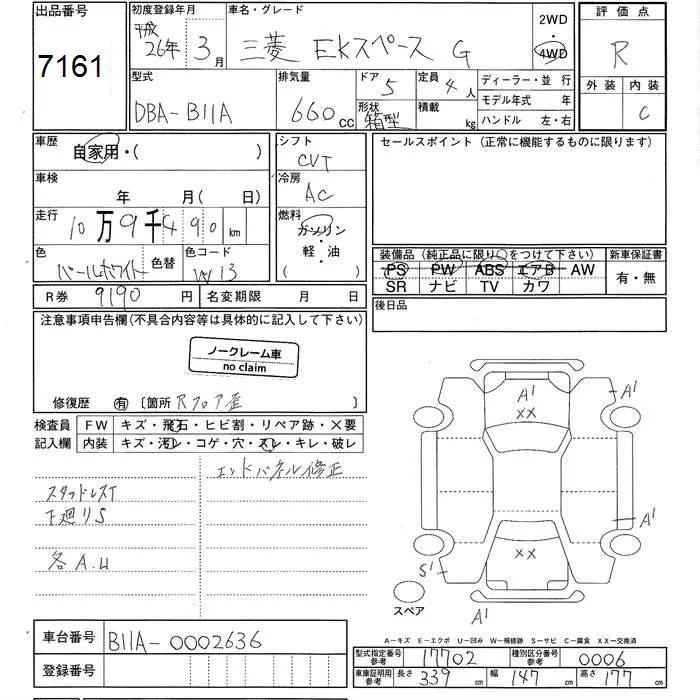 出品番号
7161
初度登録年月
平成
26年 3月
車名・グレード
三菱 EKスペース G
2WD
・
4WD
評価点
R
外装 内装
C
型式
DBA-B11A
排気量
660 CC
ドア
5
形状
箱型
定員
4人
積載
kg
ディーラー・並行
モデル年式 年
ハンドル 左・右
車歴
自家用・( )
車検
年 月( 日)
走行
10万9千490km
色
パールホワイト
色替
色コード
W13
シフト
CVT
冷房
AC
燃料
ガソリン
軽・油
( )
セールスポイント (正常に機能するものに限ります)
装備品 (純正品に限り○をつけて下さい)
PS PW ABS エアB AW
SR ナビ TV カワ
新車保証書
有・無
R券 9190 円
名変期限 月 日
後日品
注意事項申告欄(不具合内容等は具体的に記入して下さい)
ノークレーム車
no claim
修復歴 有 〔箇所 Rフロア歪 〕
検査員
記入欄
FW キズ・飛石・ヒビ割・リペア跡・×要
内装 キズ・汚レ・コゲ・穴・スレ・キレ・破レ
エンドパネル修正
スタッドレスT
下廻りS
各A.U
A1
XX
A1
A1
XX
S1
A1
スペア
A-キズ E-エクボ U-凹み W-補修跡 S-サビ C-腐食 XX-交換済
車台番号 B11A-0002636
登録番号
型式指定番号
参考
17702
種別区分番号
参考
0006
車庫証明用
参考
長さ 339 cm 幅 147 cm 高さ 177 cm